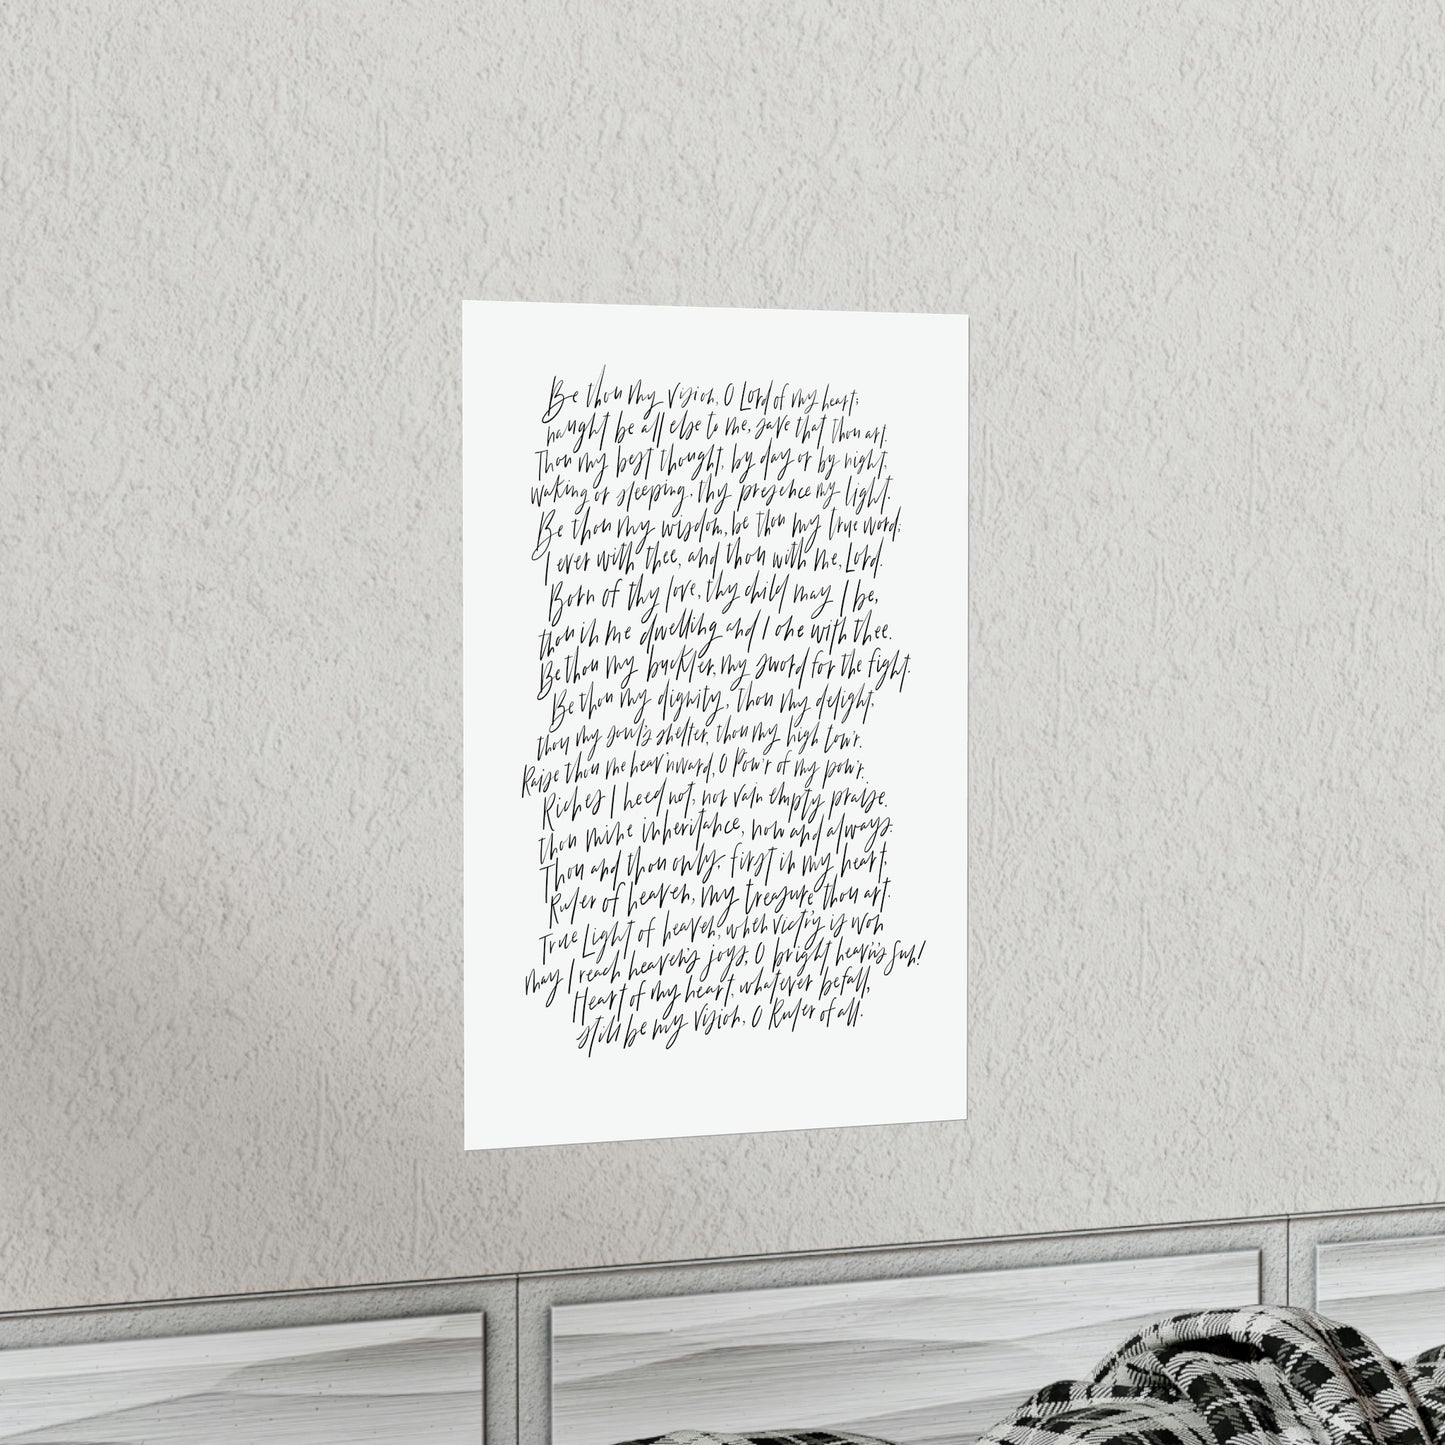 Be thou my vision, O Lord of my heart;
naught be all else to me, save that thou art.
Thou my best thought, by day or by night,
waking or sleeping, thy presence my light.
Be thou my wisdom, be thou my true word;
I ever with thee, and thou with me, Lord.
Born of thy love, thy child may I be,
thou in me dwelling and I one with thee.
Be thou my buckler, my sword for the fight.
Be thou my dignity, thou my delight,
thou my soul's shelter, thou my high tow'r.
Raise thou me heav'nward, O Pow'r of my pow'r.
Riches I heed not, nor vain empty praise.
thou mine inheritance, now and always.
Thou and thou only, first in my heart,
Ruler of heaven, my treasure thou art.
True Light of heaven, when vict'ry is won
may I reach heaven's joys, O bright heav'n's Sun!
Heart of my heart, whatever befall,
still be my vision, O Ruler of all.